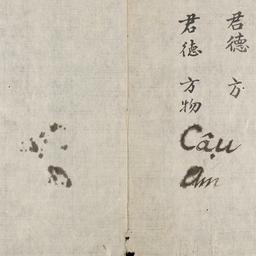 君德 方
君德 方物
Cậu
Am